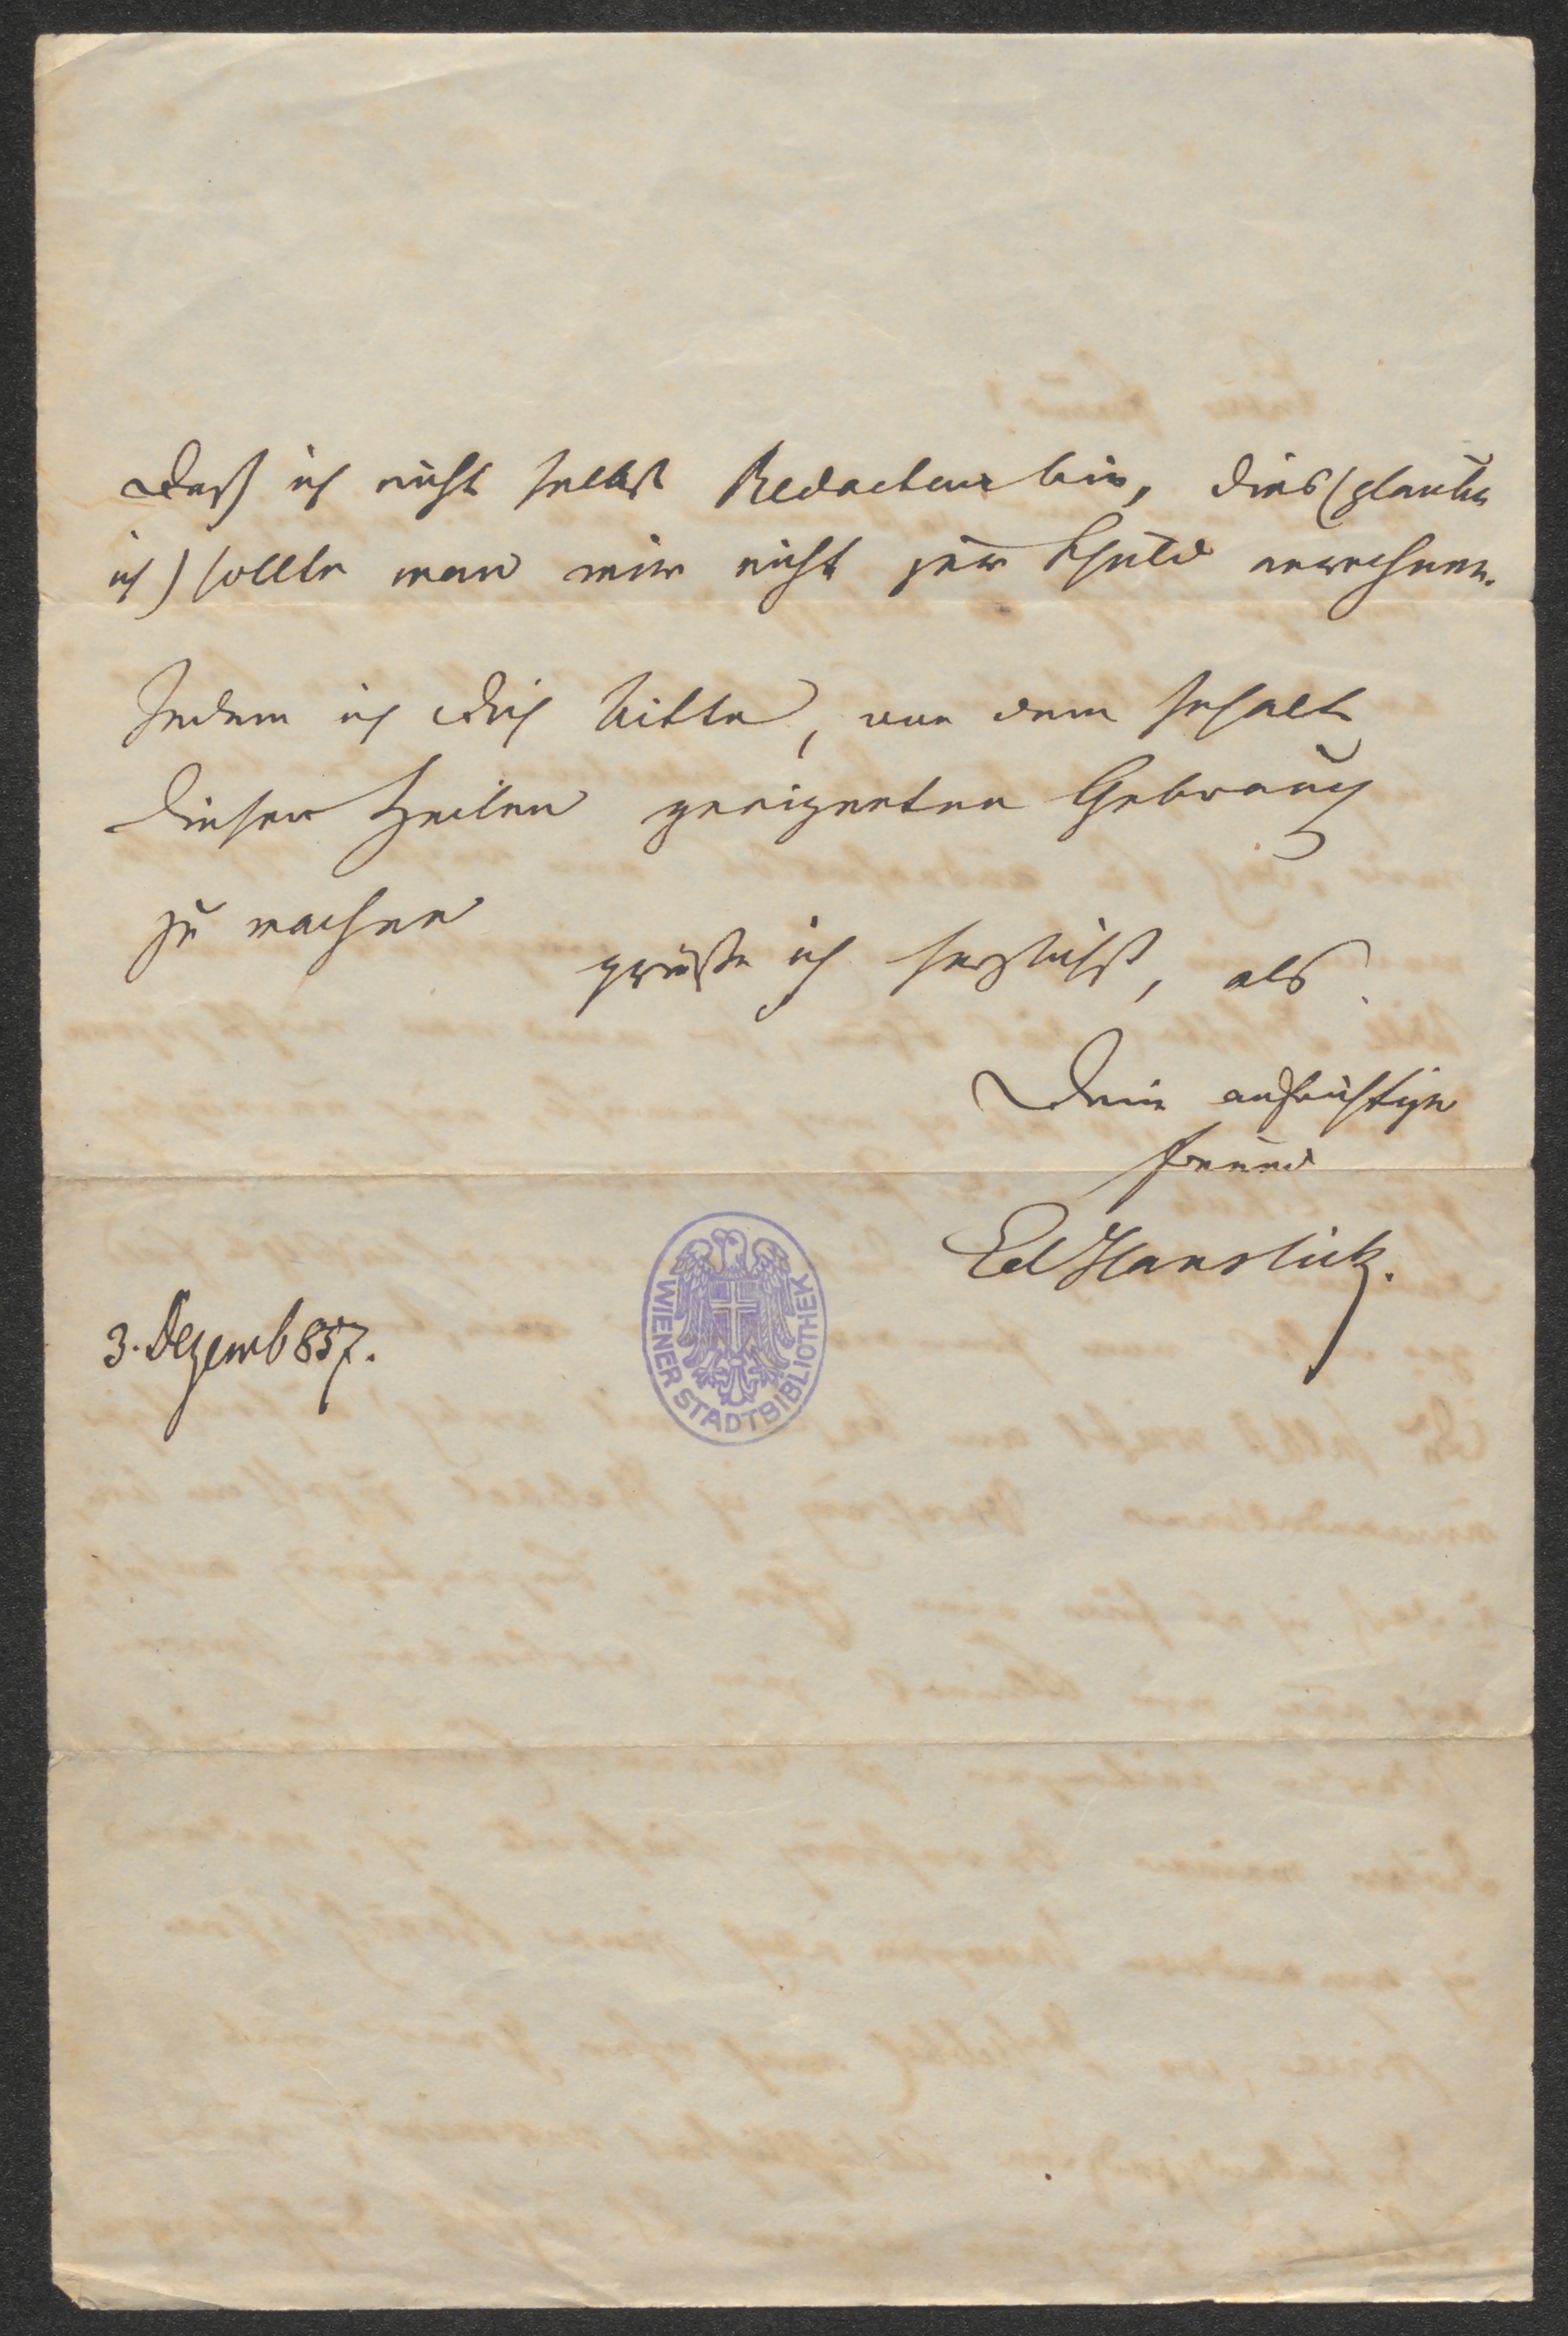 Daß ich nicht selbst Redacteur bin, dies (glaube
ich) sollte man mir nicht zur Schuld anrechnen.
Indem ich Dich bitte, von dem Inhalt
dieser Zeilen geeigneten Gebrauch
zu machen
grüße ich herzlichst, als
Dein aufrichtiger
Freund
Ed Hanslick.
3. Dezemb 857.
WIENER STADTBIBLIOTHEK